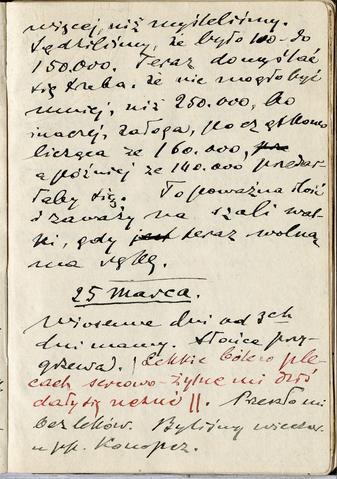 więcej, niż myśleliśmy.
Sądziliśmy, że było 100-do
150.000. Teraz domyślać
się trzeba, że nie mogło być
mniej, niż 250.000, bo
inaczej, załoga, początkowo
licząca ze 160.000,
a później ze 140.000 przedar-
łaby się. To poważna ilość
i zaważy na szali wal-
ki, gdy jest teraz wolną
ma rękę.
25 marca.
Wiosenne dni od 3ch
dni mamy. Słońce przy-
grzewa. Lekkie bóle w ple-
cach sercowo-żylne mi dziś
dały się uczuć ||. Przeszło mi
bez leków. Byliśmy wieczor.
u pp. Konopcz.